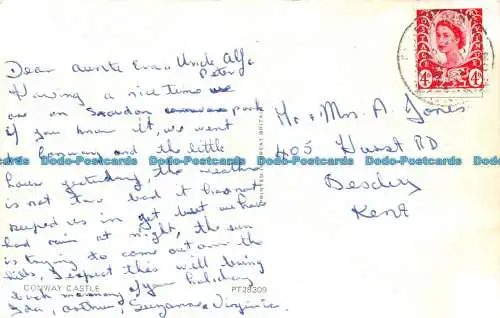 Dear Aunte Eva & Uncle Alf.
Peter,
Having a nice time we
are on Snowdon park
if you know it, we went
to Conway and the little
house yesterday, the weather
is not too bad it has not
keeped us in yet but we have
had rain at night, the sun
is trying to come out over the
hills, I expect this will bring
back memory of your holiday
Ida, Arthur, Suzanne & Virginia.
CONWAY CASTLE
PT28309
PRINTED IN GREAT BRITAIN
Mr & Mrs. A. Jones
405 Hurst RD
Bexley
Kent
4D 4D
Dodo-Postcards Dodo-Postcards Dodo-Postcards Dodo-Postcards Dodo-Postcards